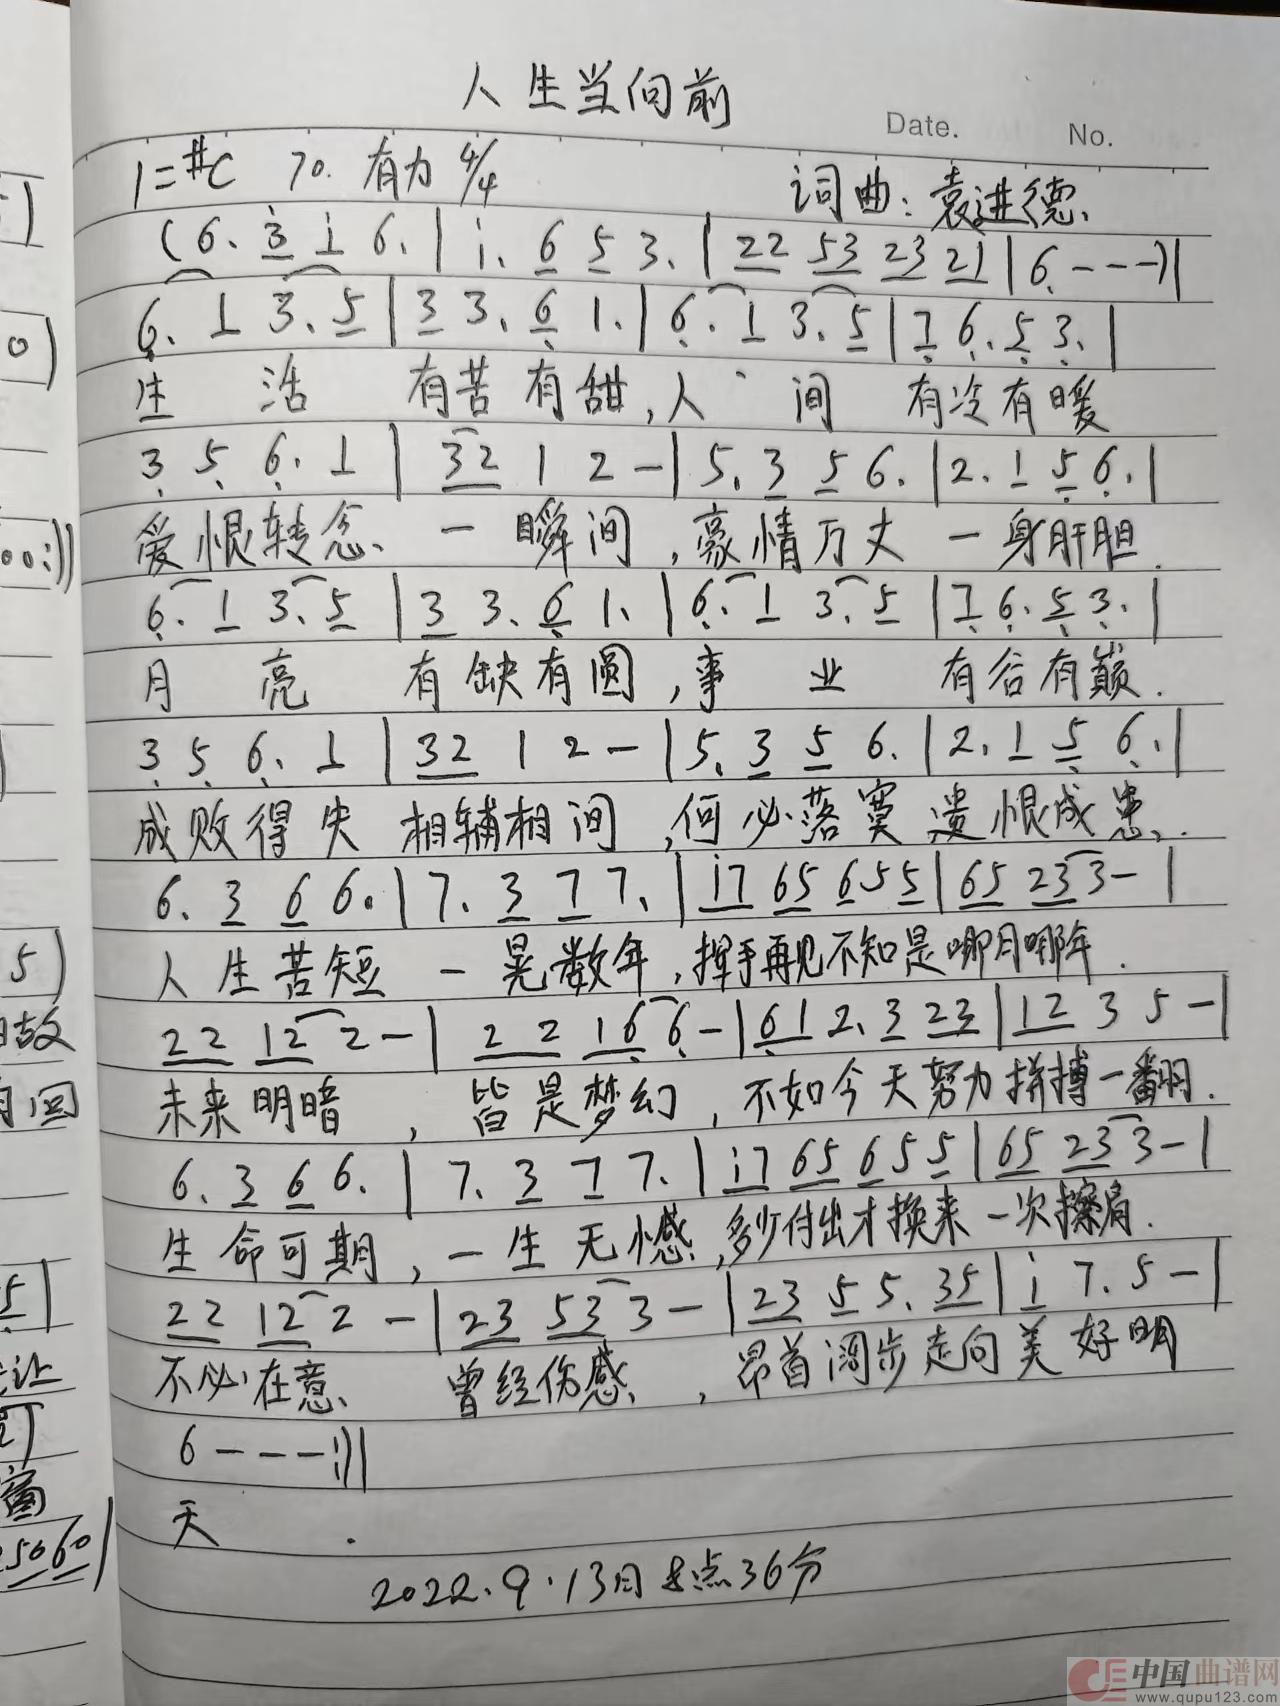 人生当向前
Date. No.
1=#C 70. 有力 4/4 词曲:袁进德.
(6. 3 i 6. | i. 6 5 3. | 22 53 23 21 | 6 - - -) |
6. 1 3. 5 | 3 3. 6 1. | 6. 1 3. 5 | 7 6. 5 3. |
生 活 有苦有甜,人 间 有冷有暖
3 5 6. 1 | 32 1 2 - | 5. 3 5 6. | 2. 1 5 6. |
爱恨转念、一瞬间,豪情万丈 一身肝胆.
6. 1 3. 5 | 3 3. 6 1. | 6. 1 3. 5 | 7 6. 5 3. |
月 亮 有缺有圆,事 业 有谷有巅.
3 5 6. 1 | 32 1 2 - | 5. 3 5 6. | 2. 1 5 6. |
成败得失 相辅相间,何必落寞 遗恨成患.
6. 3 6 6. | 7. 3 7 7. | i7 65 655 | 65 23 3 - |
人生苦短 一晃数年,挥手再见不知是哪月哪年.
22 12 2 - | 22 16 6 - | 61 2. 3 23 | 12 3 5 - |
未来明暗,皆是梦幻,不如今天努力拼搏一翻.
6. 3 6 6. | 7. 3 7 7. | i7 65 655 | 65 23 3 - |
生命可期,一生无憾,多少付出才换来一次擦肩.
22 12 2 - | 23 53 3 - | 23 5 5. 35 | i 7. 5 - |
不必在意、曾经伤感、,昂首阔步走向美好明
6 - - - :||
天 .
2022.9.13日8点36分
5)
0)
00:||
5)
故
间
5|
让
窗
5060|
中国曲谱网
www.qupu123.com